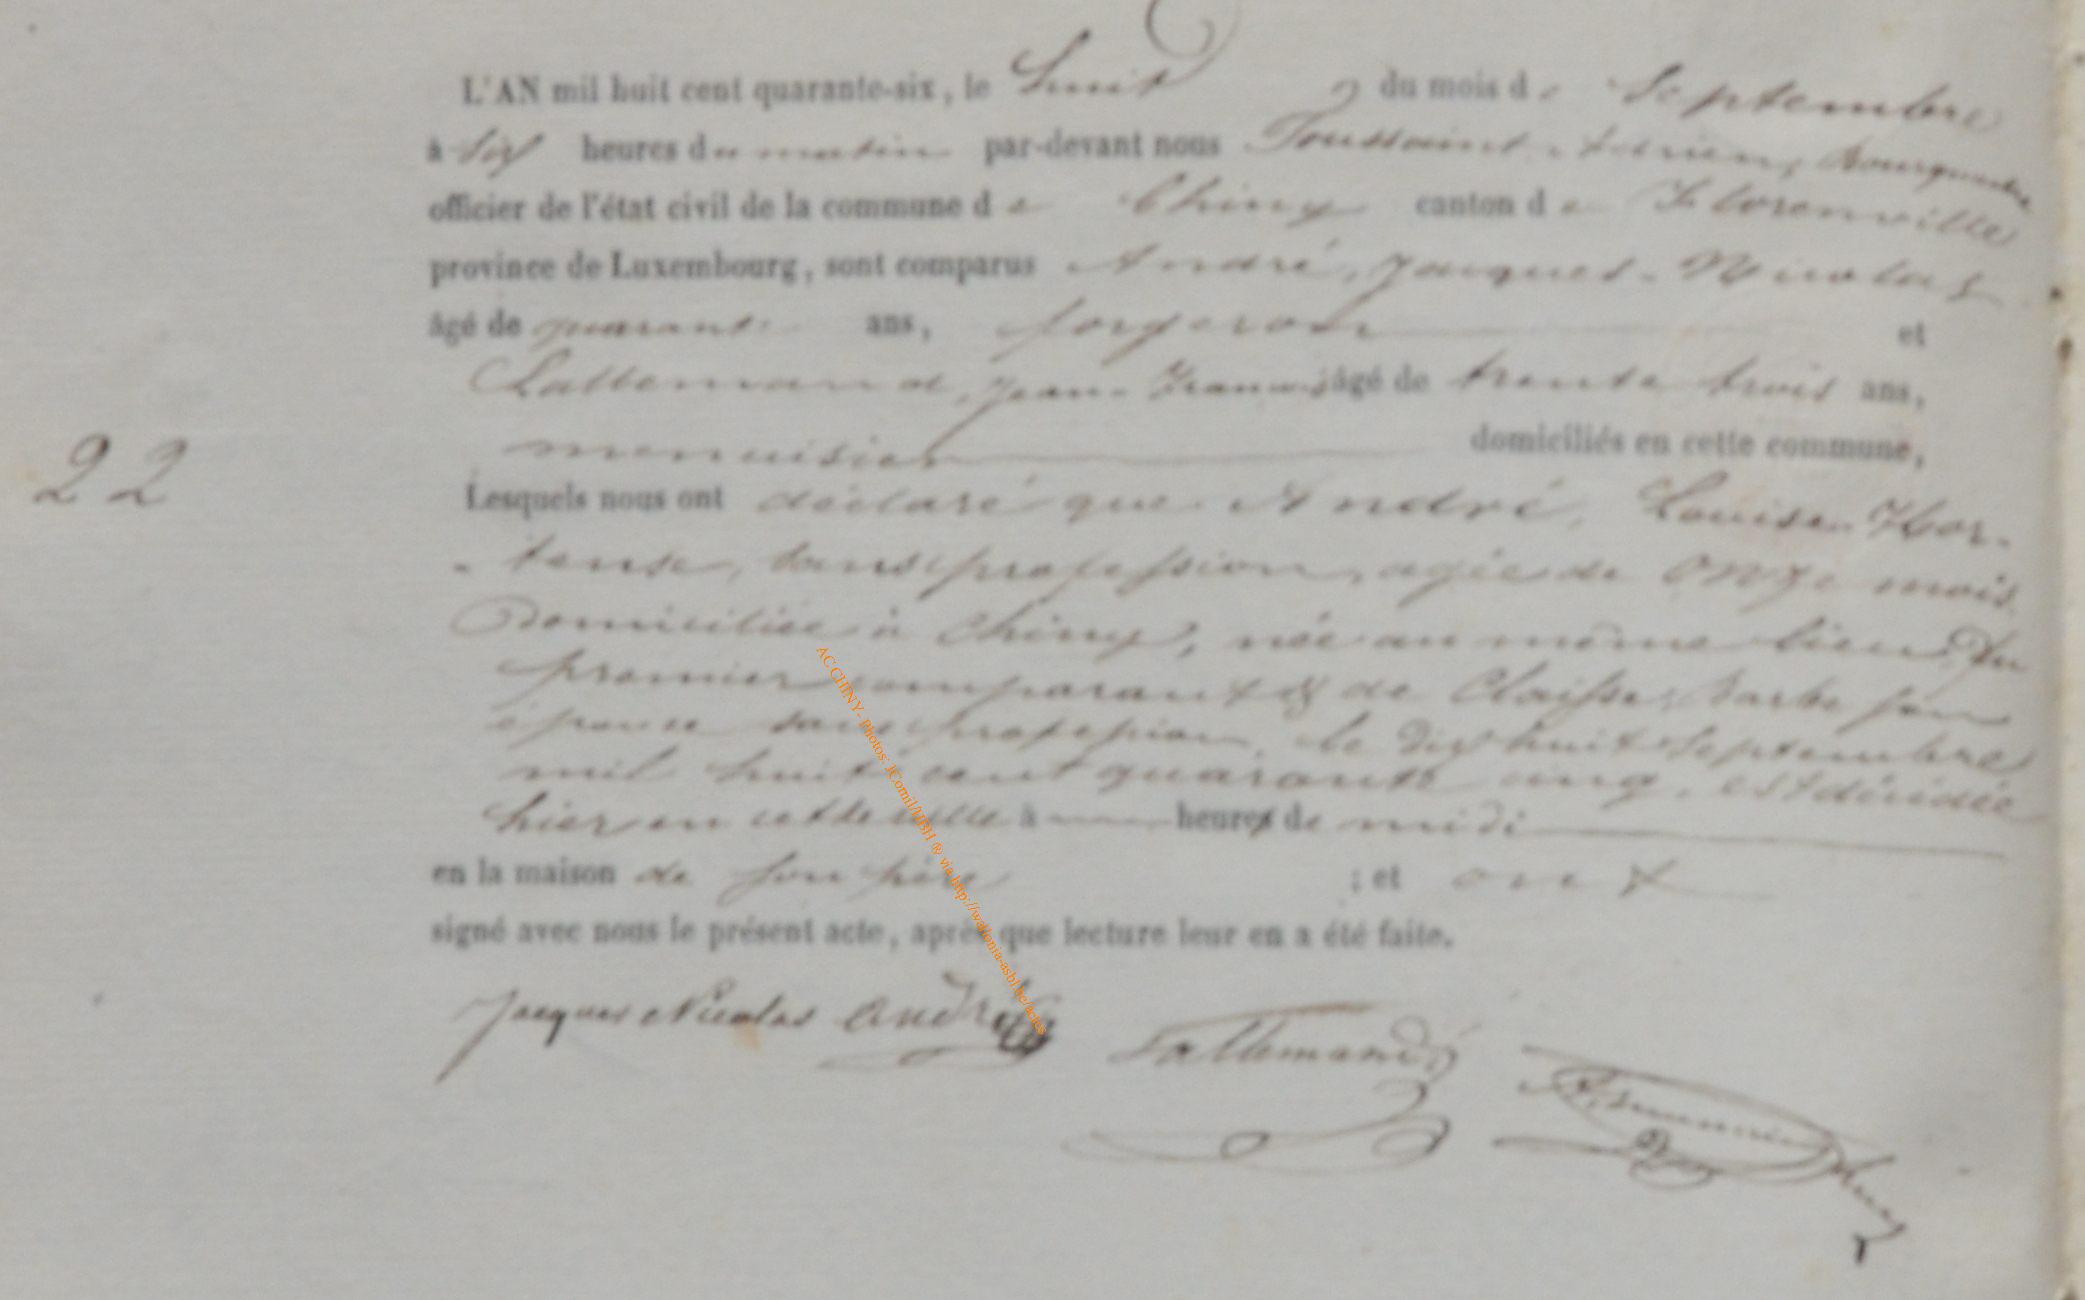 L'AN mil huit cent quarante-six, le huit du mois de Septembre
à six heures du matin par-devant nous Toussaint Adrien, Bourguemestre
officier de l'état civil de la commune de Chiny canton de Florenville
province de Luxembourg, sont comparus André, Jacques-Nicolas
âgé de quarante ans, forgeron et
Lallemand, Jean-François âgé de trente trois ans,
menuisier domiciliés en cette commune,
22
Lesquels nous ont déclaré que André, Louise-Hor-
-tense, sans profession, agée de onze mois
Domiciliée à Chiny, née au même lieu, du
premier comparant & de Claisse, Barbe son
épouse sans profession, le dix huit Septembre
mil huit cent quarante cinq, est décédée
hier en cette ville à heure de midi
en la maison de son père ; et ont
signé avec nous le présent acte, après que lecture leur en a été faite.
Jacques Nicolas André
Lallemand
AC CHINY - Photos: JComil/LHSH ® via http://wallonia-asbl.be/actes